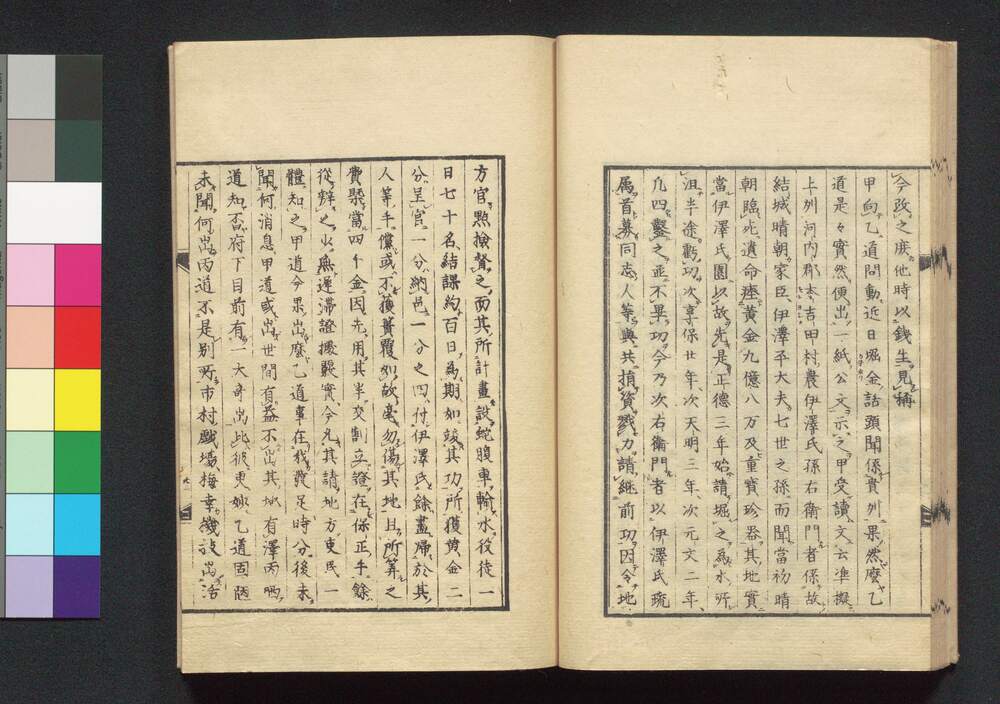 今改之廃他時以錢生見稱
甲向乙道問動近日堀金話頭聞係貴州果然麼乙
道是々實然便出一紙公文示之甲受讀文云准擬
上州河內郡本吉田村農伊澤氏孫右衛門者係故
結城晴朝家臣伊澤平大夫七世之孫而聞當初晴
朝臨死遺命瘞黃金九億八万及重寶珍器其地實
當伊澤氏園以故先是正德三年始請堀之為水所
沮半途虧功次享保廿年次天明三年次元文二年
凡四鑿之並不果功今乃次右衛門者以伊澤氏疏
屬首募同志人等與共捐資戮力請継前功因令地
方官點撿督之而其所計畫設蛇腹車輸水役徒一
日七十名結課約百日為期如竣其功所獲黃金二
分呈官一分納邑一分之四付伊澤氏餘盡歸於其
人等手儻或不獲貲覆如故毫勿傷其地且所算之
費槩當四千金因先用其半交割立證在保正手餘
從辨之火無遲滯證據覈實今允其請地方吏民一
體知之甲道今果出麼乙道事在我發足時分後未
聞何消息甲道或出世間有益不出其城有澤丙嗎
道知否府下目前有一大奇出此彼更妙乙道固陋
未聞何出丙道不是別所市村戲場梅幸錢設出活